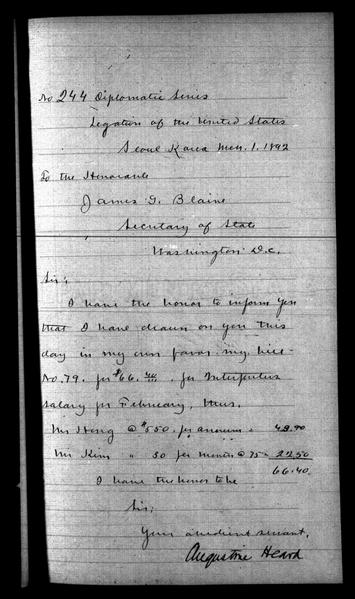 No 244 Diplomatic Series
Legation of the United States
Seoul Korea Mch. 1. 1892
To the Honorable
James G. Blaine
Secretary of State
Washington D.C.
Sir;
I have the honor to inform you
that I have drawn on you this
day in my own favor my bill
No. 79. for $66.40 for Interpreters
salary for February, thus.
Mr Hong @ $550. per annum = 43.90
Mr Kim " 30 per month @ 75 = 22.50
66.40
I have the honor to be
Sir;
Your obedient servant,
Augustine Heard